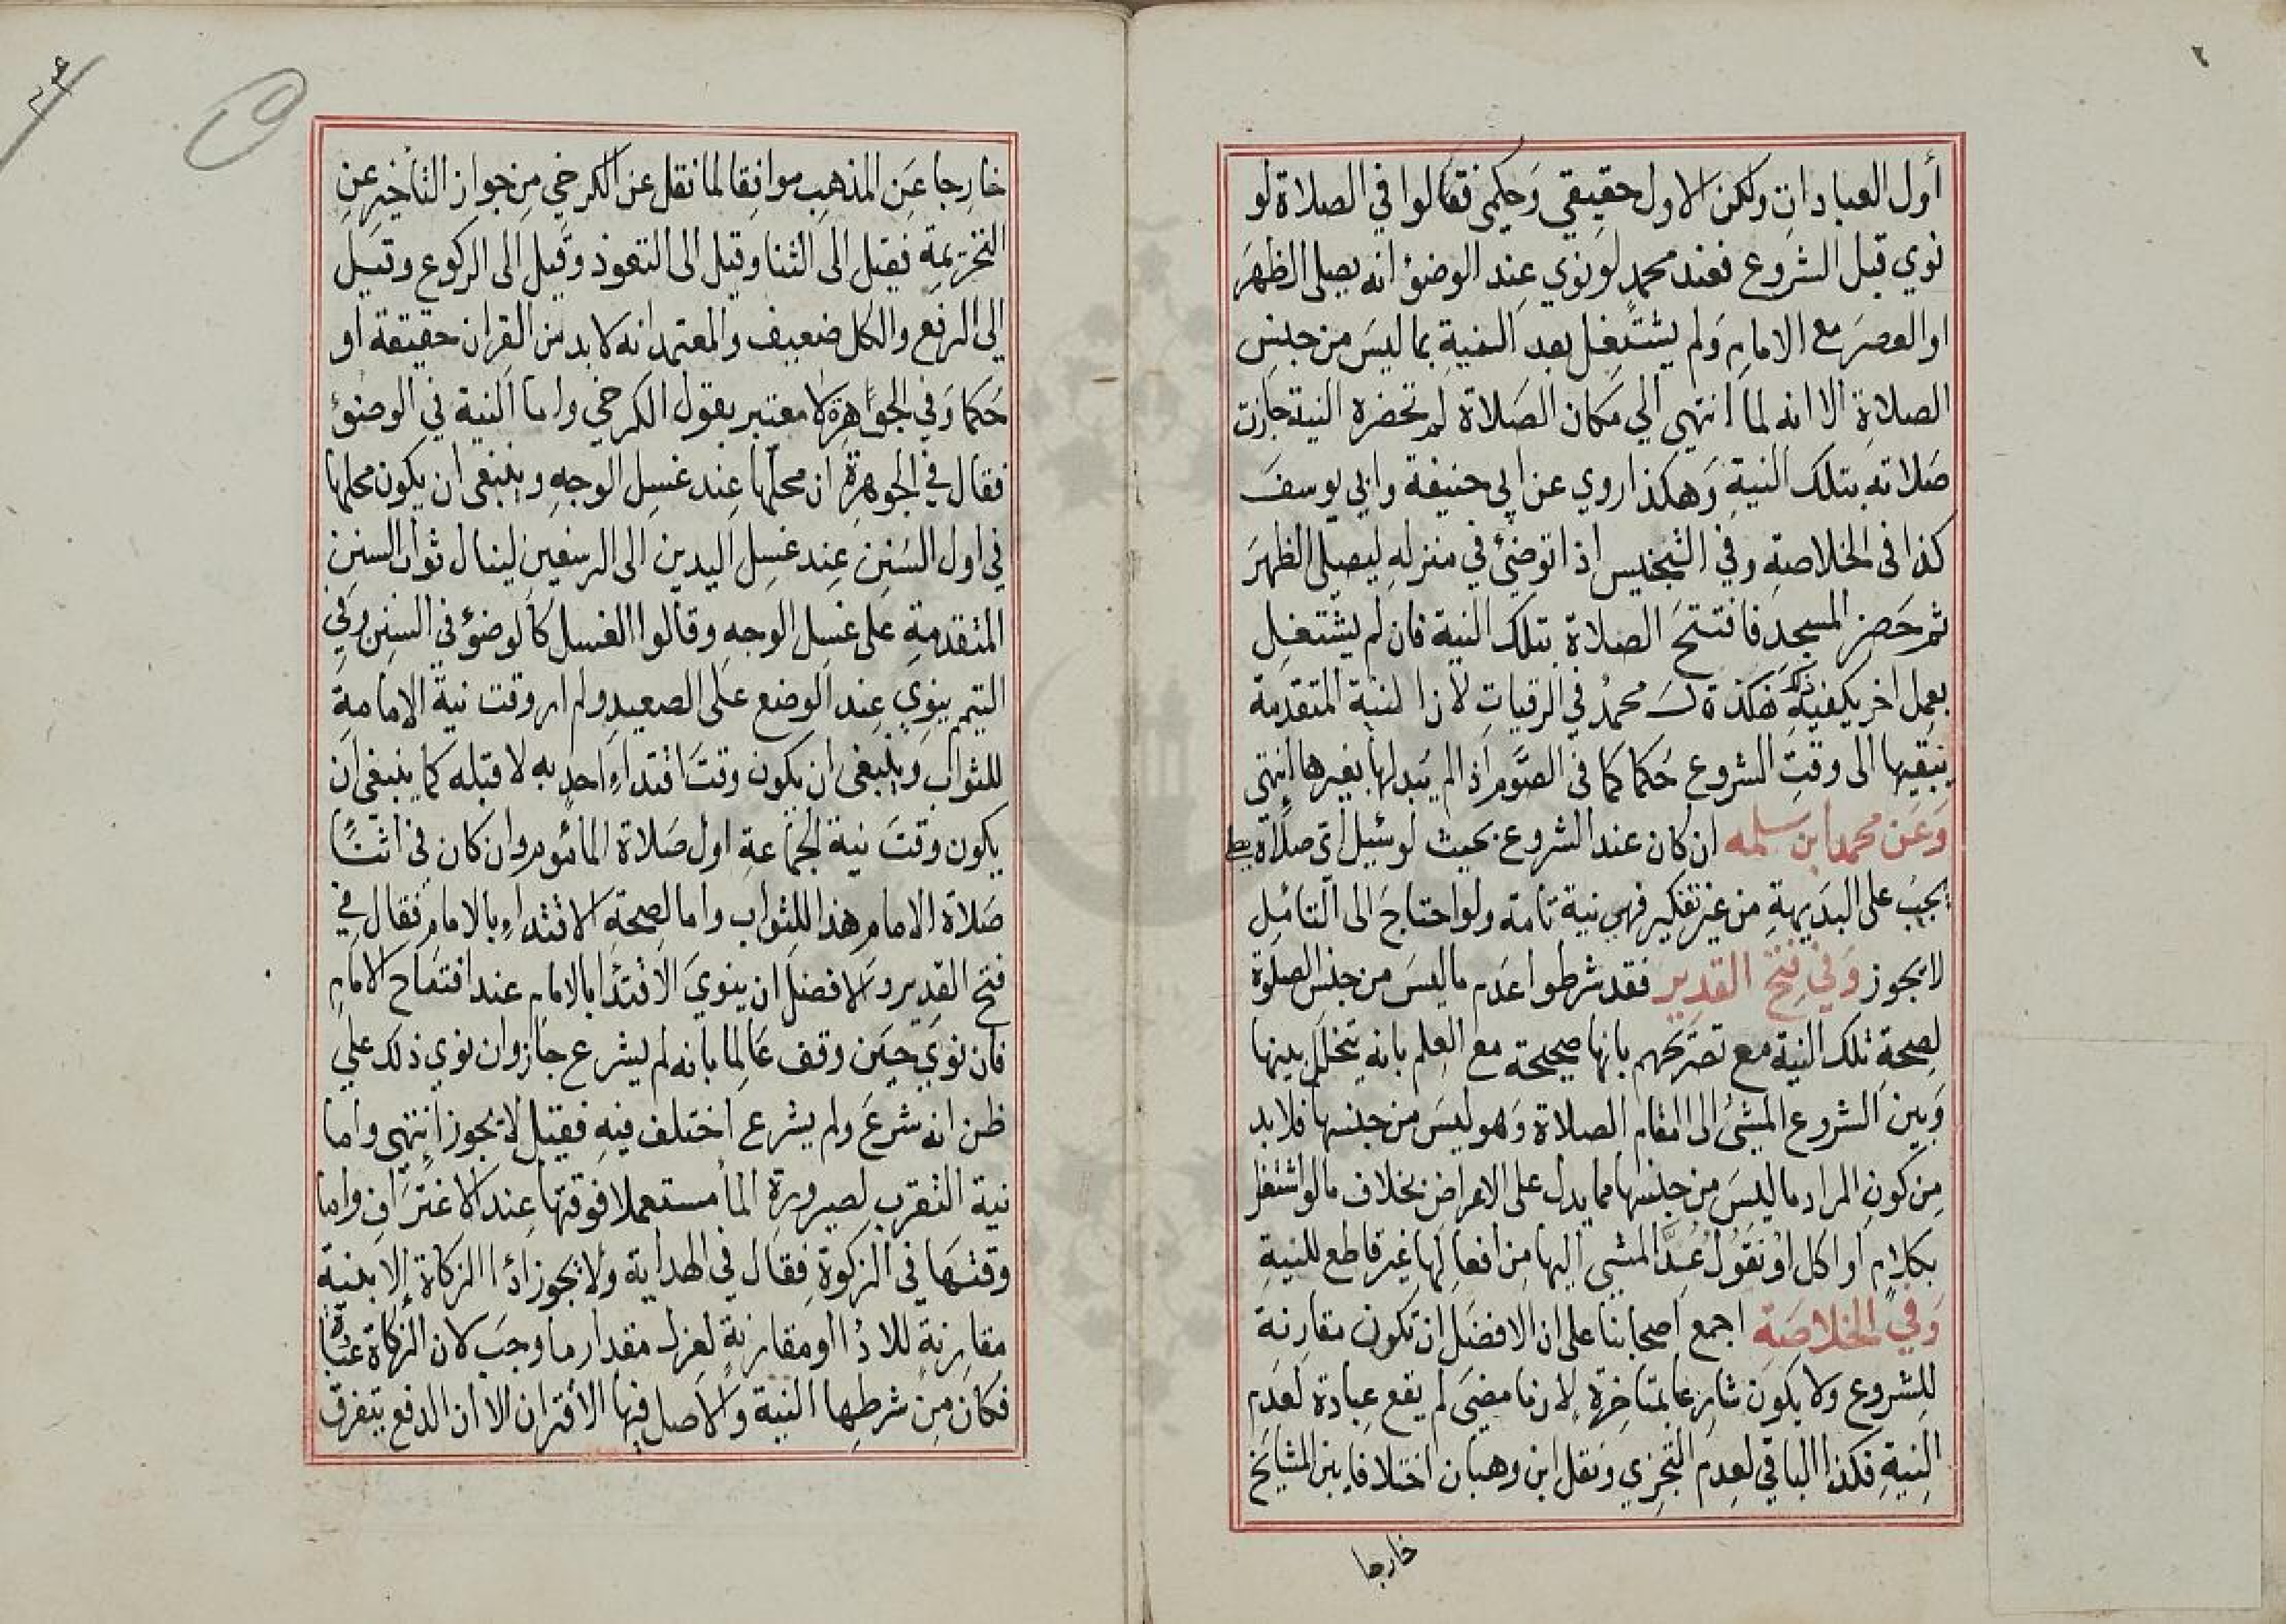 ٢
أول العبادات ولكن الاول حقيقي وحكمي فقالوا في الصلاة لو
نوي قبل الشروع فعند محمد لو نوي عند الوضوٴ انه يصلى الظهر
او العصر مع الامام ولم يشتغل بعد النية بما ليس من جنس
الصلاة الا انه لما انتهي الي مكان الصلاة لم تحضره النية جازت
صلاته بتلك النية وهكذا روي عن ابي حنيفة وابي يوسف
كذا فى الخلاصة وفي التجنيس اذا توضئ في منزله ليصلى الظهر
ثم حضر المسجد فافتتح الصلاة بتلك النية فان لم يشتغل
بعمل اخر يكفيه محمد في الرقيات لان النية المتقدمة
يبقيها الى وقت الشروع حكما كما فى الصوم اذا لم يبدلها بغيرها انتهي
وعن محمد ابن سلمه ان كان عند الشروع بحيث لو سئيل اي صلاة يصلي
يجب على البديهة من غير تفكير فهي نية تامة ولو احتاج الى التأمل
لا يجوز وفي فتح القدير فقد شرطوا عدم ما ليس من جنس الصلوة
لصحة تلك النية مع تصريحهم بانها صحيحة مع العلم بانه يتخلل بينها
وبين الشروع المشئ الى مقام الصلاة وهو ليس من جنسها فلا بد
من كون المراد ما ليس من جنسها مما يدل على الاعراض بخلاف ما لو اشتغل
بكلام او اكل او نقول عد المشي اليها من افعالها غير قاطع للنية
وفي الخلاصة اجمع اصحابنا على ان الافضل ان تكون مقارنة
للشروع ولا يكون شارعا بمتاخرة لان ما مضى لم يقع عبادة لعدم
النية فكذا الباقي لعدم التجزي ونقل ابن وهبان اختلافا بين المشايخ
خارجا
خارجا عن المذهب موافقا لما نقل عن الكرخي من جواز التأخير عن
التحريمة فقيل الى الثنا وقيل الى التعوذ وقيل الى الركوع وقيل
الى الرفع والكل ضعيف والمعتمد انه لا بد من القران حقيقة او
حكما وفي الجواهرة لا معتبر بقول الكرخي واما النية في الوضوٴ
فقال في الجوهرة ان محلها عند غسل الوجه وينبغى ان يكون محلها
في اول السنن عند غسل اليدين الى الرسغين لينال ثواب السنن
المتقدمة على غسل الوجه وقالوا الغسل كالوضوٴ في السنن وفي
التيم ينوي عند الوضع على الصعيد ولم ار وقت نية الامامة
للثواب وينبغى ان يكون وقت اقتداء احد به لا قبله كما ينبغى ان
يكون وقت نية الجماعة اول صلاة الماٴموم وان كان في اثنا
صلاة الامام هذا للثواب واما لصحة الاقتداء بالامام فقال في
فتح القدير والافضل ان ينوي الاقتدأ بالامام عند افتتاح الامام
فان نوي حين وقف عالما بانه لم يشرع جاز وان نوي ذلك علي
ظن انه شرع ولم يشرع اختلف فيه فقيل لا يجوز انتهى واما
نية التقرب لصيرورة المأ مستعملا فوقتها عند الاغتراف واما
وقتها في الزكوة فقال في الهداية ولا يجوز ادٴا الزكاة إلا بنية
مقارنة للادٴا او مقارنة لعزل مقدار ما وجب لان الزكاة عبادة
فكان من شرطها النية والاصل فيها الاقتران الا ان الدفع يتفرق